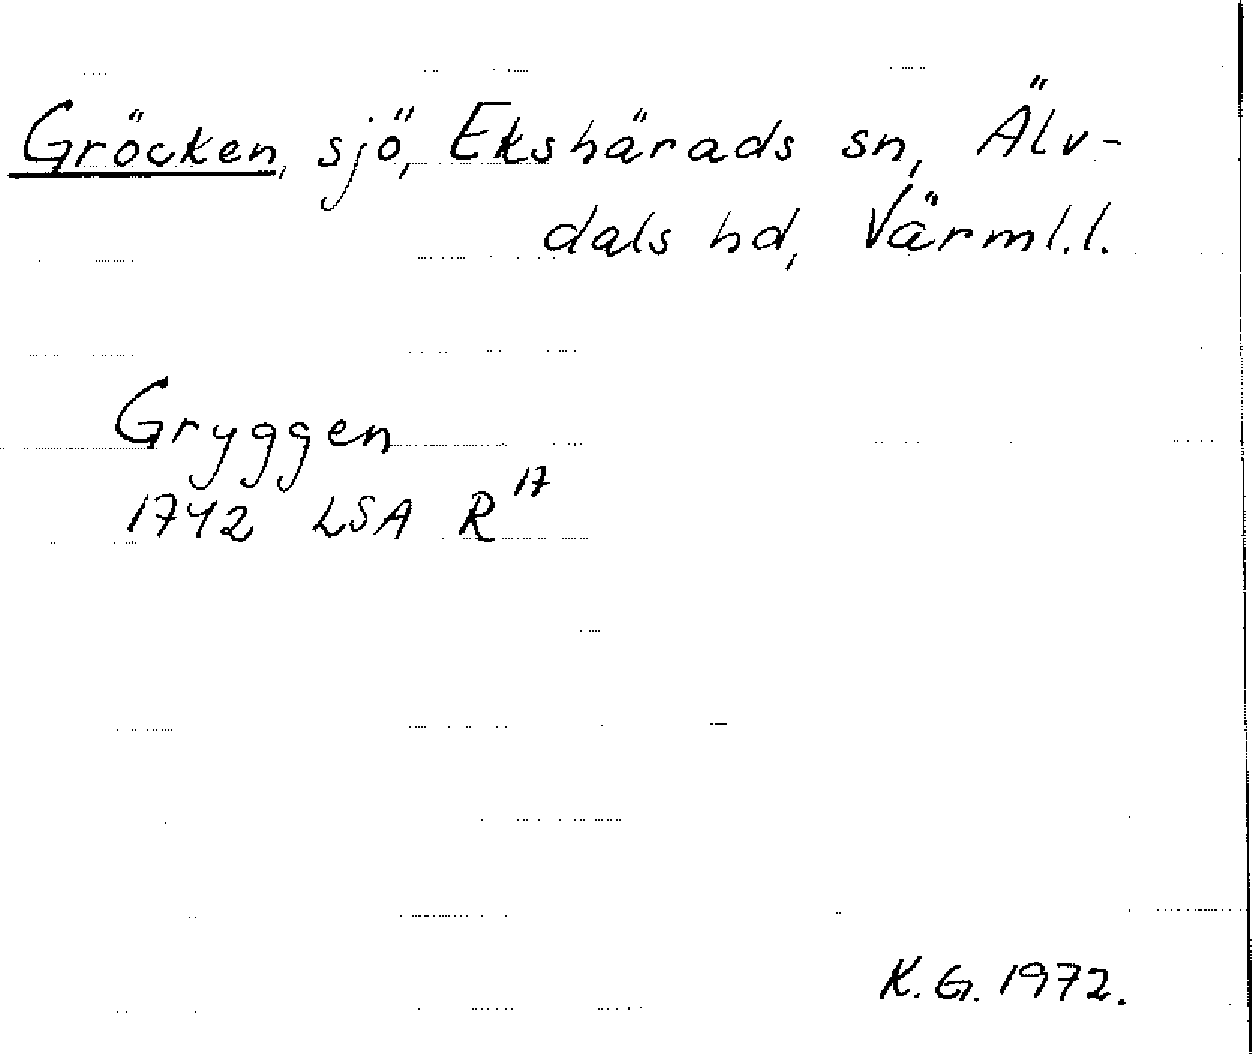 Gröcken, sjö, Ekshärads sn, Älv-
dals hd, Värml. l.
Gryggen
1742 LSA R 17
K. G. 1972.